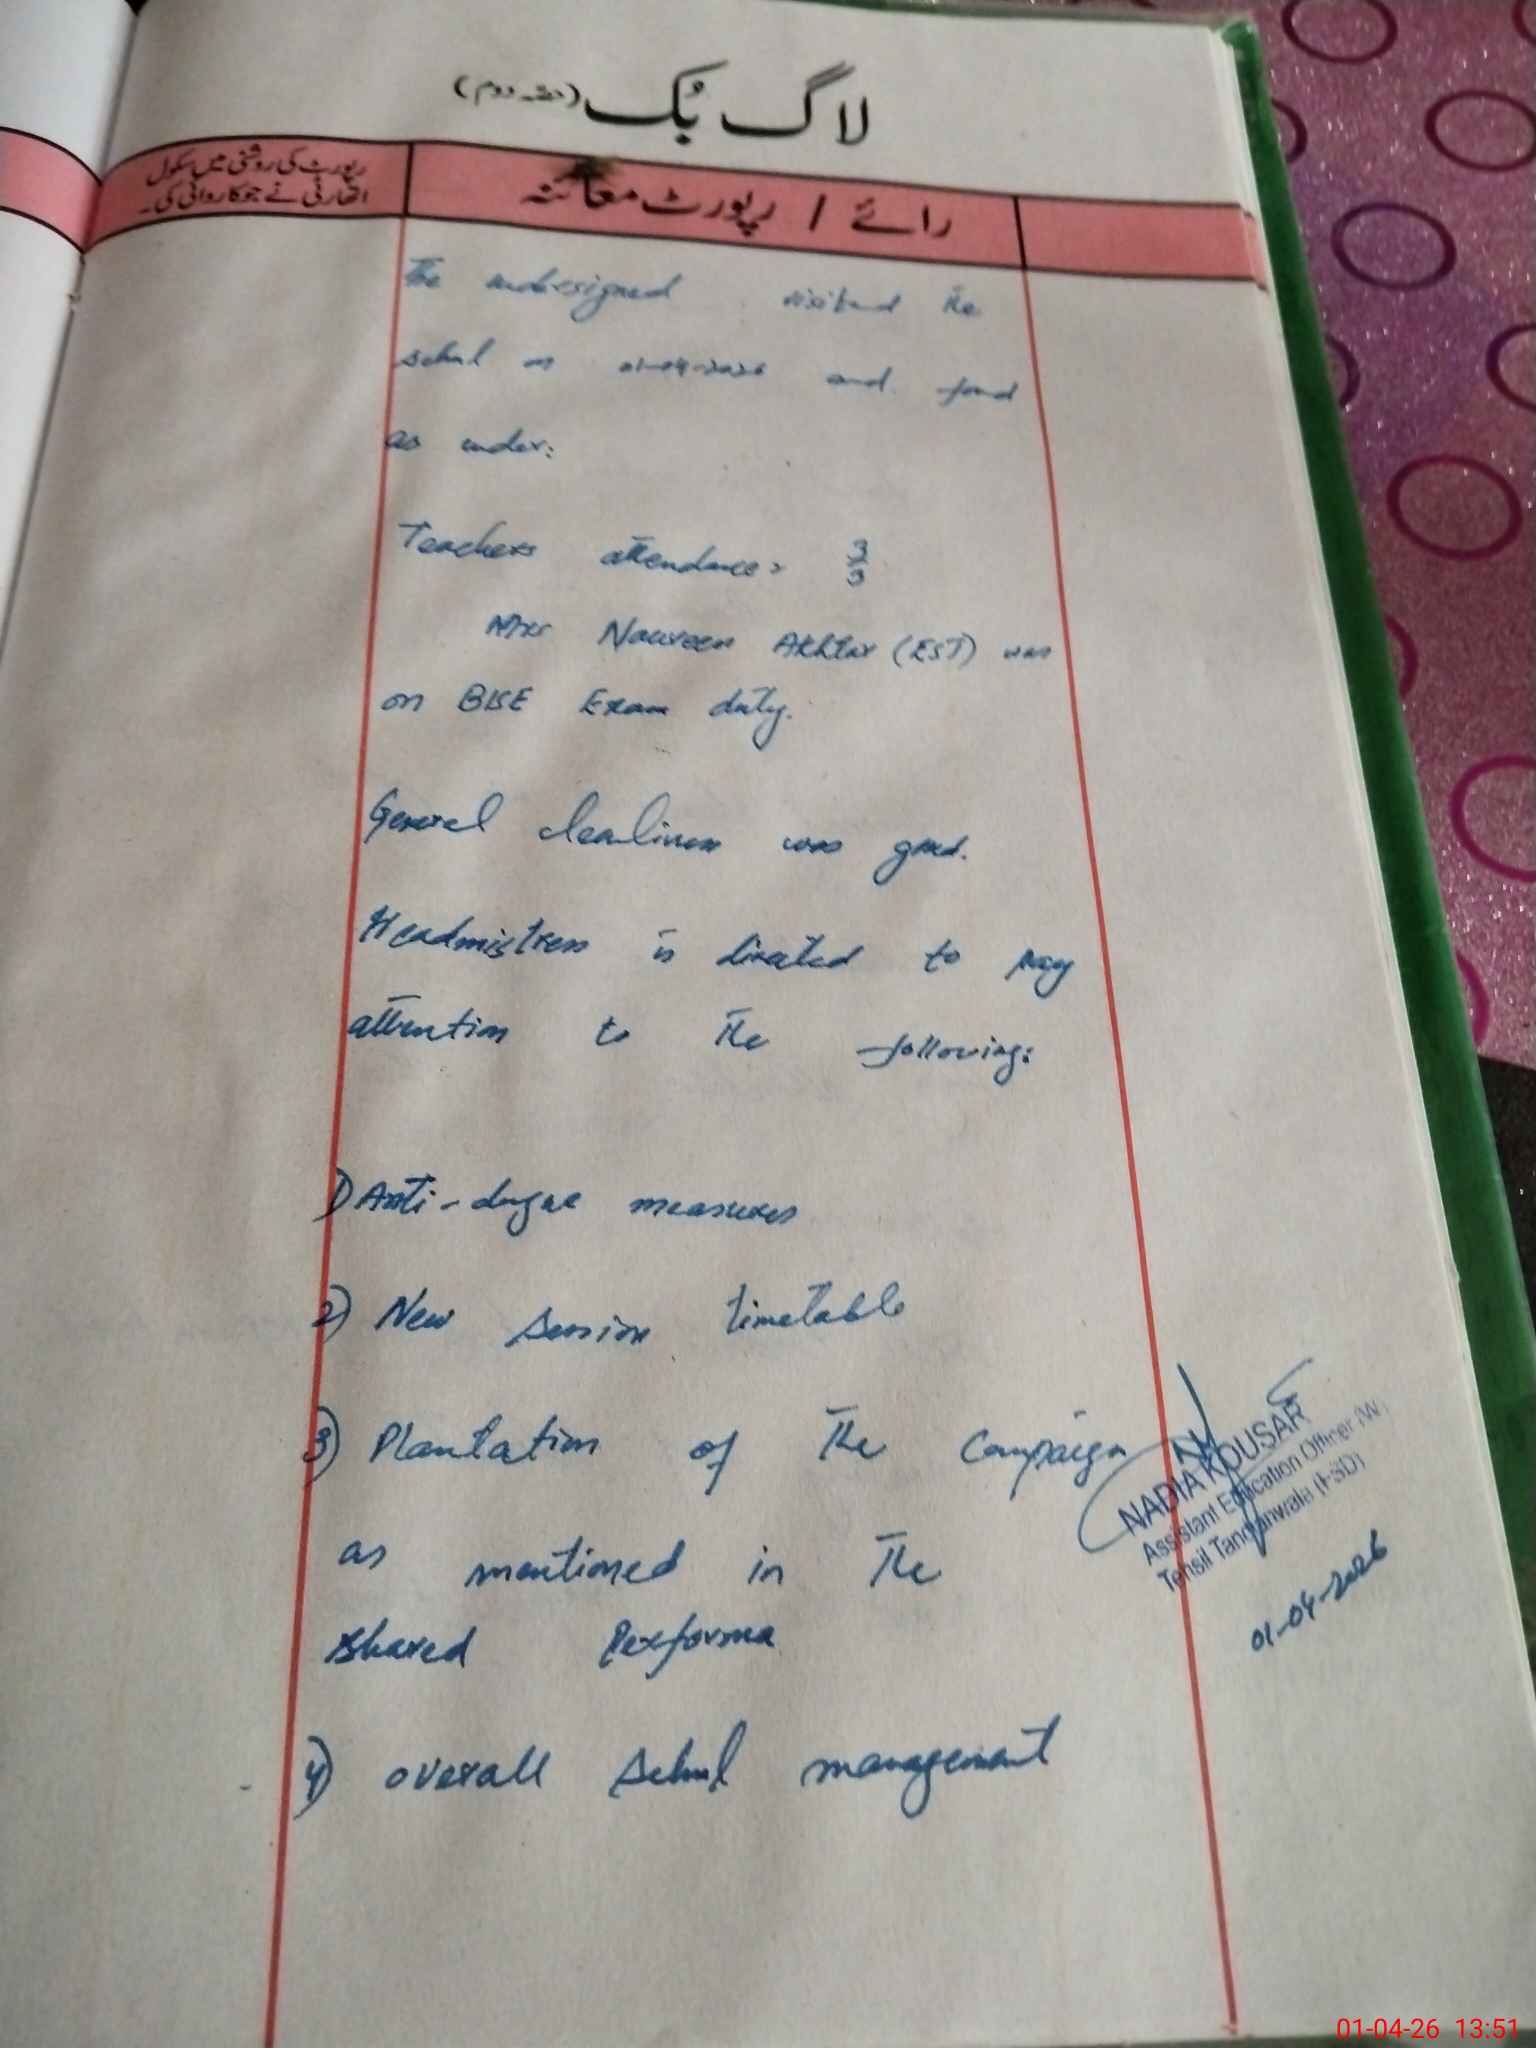 لاگ بُک (حصہ دوم)
رائے / رپورٹ معائنہ
رپورٹ کی روشنی میں سکول
اتھارٹی نے جو کاروائی کی۔
The undersigned visited the
school on 01-04-2026 and found
as under:
Teachers attendance = 3/3
Mrs Nawreen Akhtar (EST) was
on BISE Exam duty.
General cleanliness was good.
Headmistress is directed to pay
attention to the following:
1) Anti-dengue measures
2) New session timetable
3) Plantation of the campaign
as mentioned in the
shared Performa
4) overall school management
NADIA KOUSAR
Assistant Education Officer (W)
Tehsil Tandlianwala (FSD)
01-04-2026
01-04-26 13:51